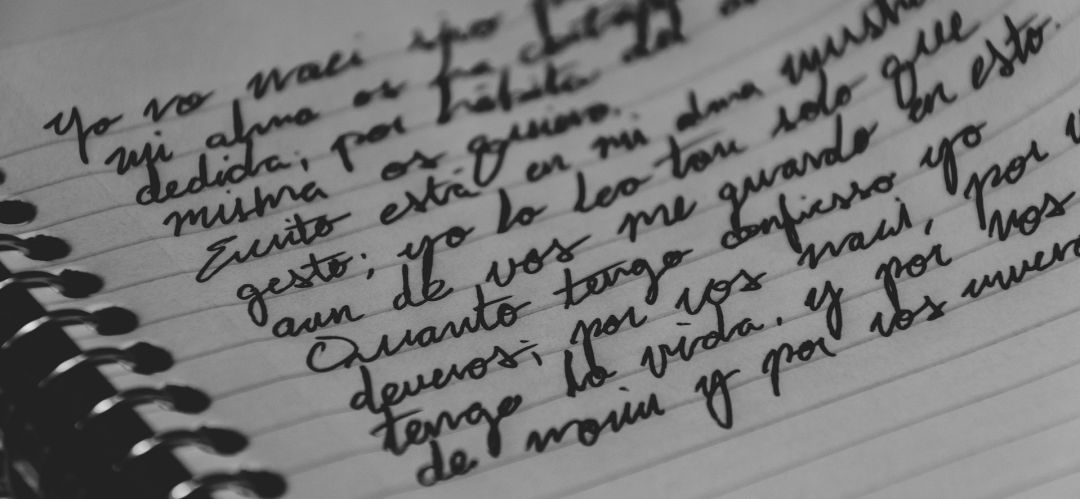 yo no naci sino
mi alma os ha
dedida; por hábito del
misma os quiero.
Escrito está en mi alma vuestro
gesto; yo lo leo tan solo que
aun de vos me guardo en esto.
Quanto tengo confiesso yo
deveros; por vos naci, por
tengo la vida, y por vos
de morir y por vos muero